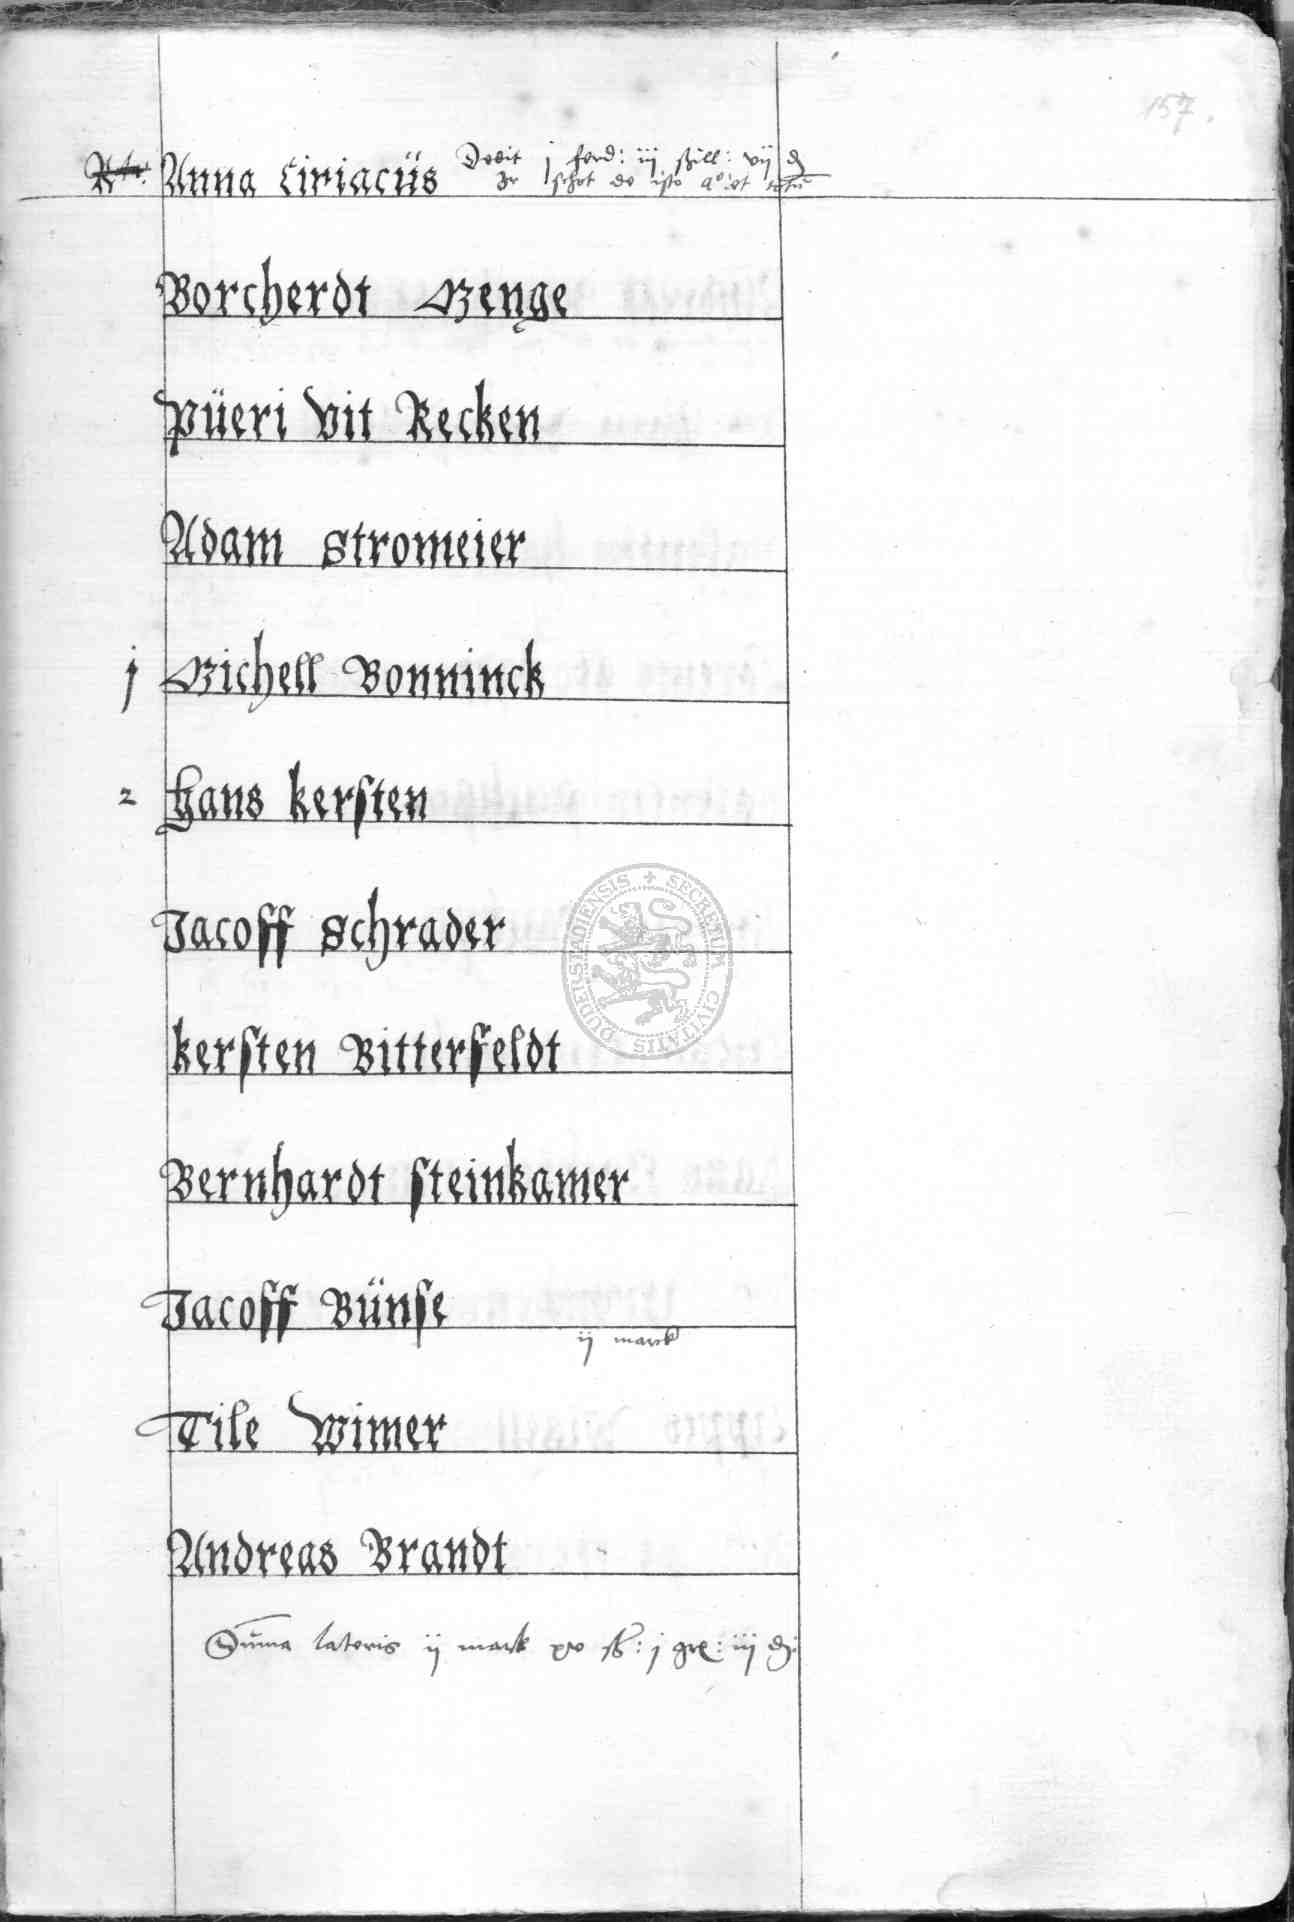 157.
Anna Ciriacüs Dedit j ferd: iij ßill: vij d
schot de isto a° et
Borcherdt Menge
Püeri Vit Recken
Adam Stromeier
j Michell Bonninck
2 Hans kersten
Jacoff Schrader
kersten Bitterfeldt
Bernhardt steinkamer
Jacoff Bünse
ij marck
Tile Wimer
Andreas Brandt
Suma lateris ij mark xvo ß: j gr: iij d:
DUDERSTADIENSIS + SECRETUM CIVITATIS